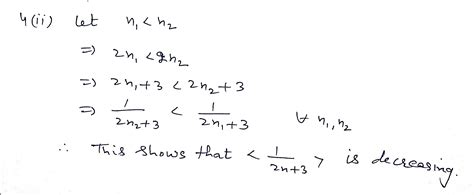 4(ii) Let n₁ < n₂
⇒ 2n₁ < 2n₂
⇒ 2n₁+3 < 2n₂+3
⇒ 1/(2n₂+3) < 1/(2n₁+3) ∀ n₁, n₂
∴ This shows that < 1/(2n+3) > is decreasing.